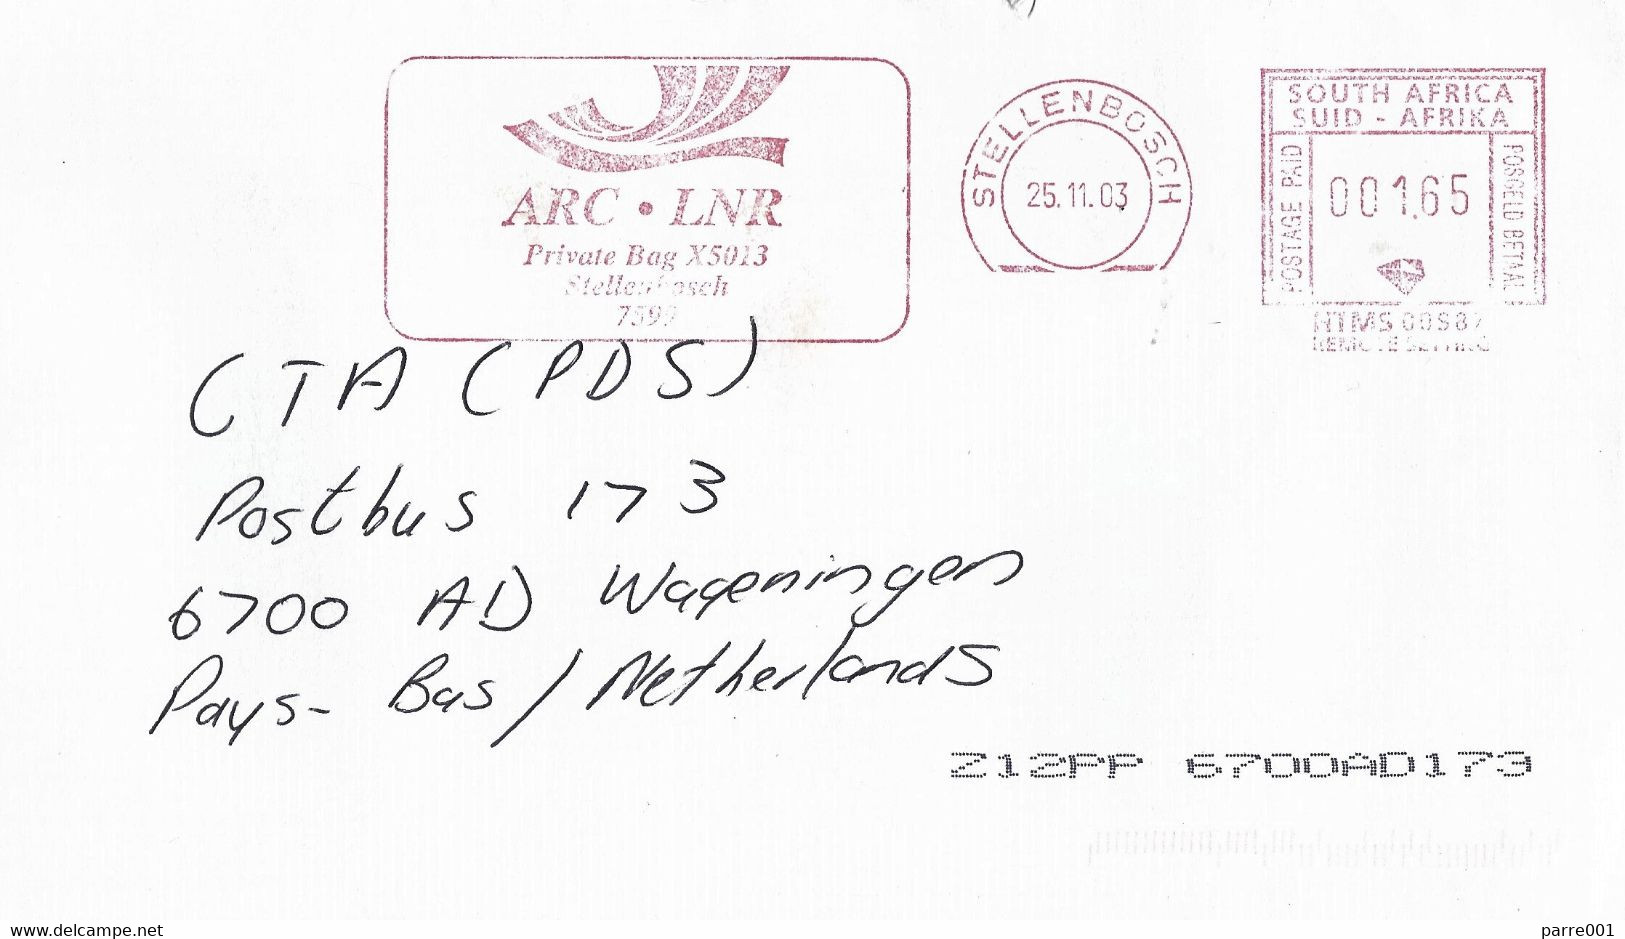 ARC • LNR
Private Bag X5013
Stellenbosch
7599
STELLENBOSCH
25.11.03
SOUTH AFRICA
SUID - AFRIKA
POSTAGE PAID
001.65
POSGELD BETAAL
REMOTE SETTING
CTA (PDS)
Postbus 173
6700 AD Wageningen
Pays-Bas / Netherlands
212PP 6700AD173
delcampe.net
parre001